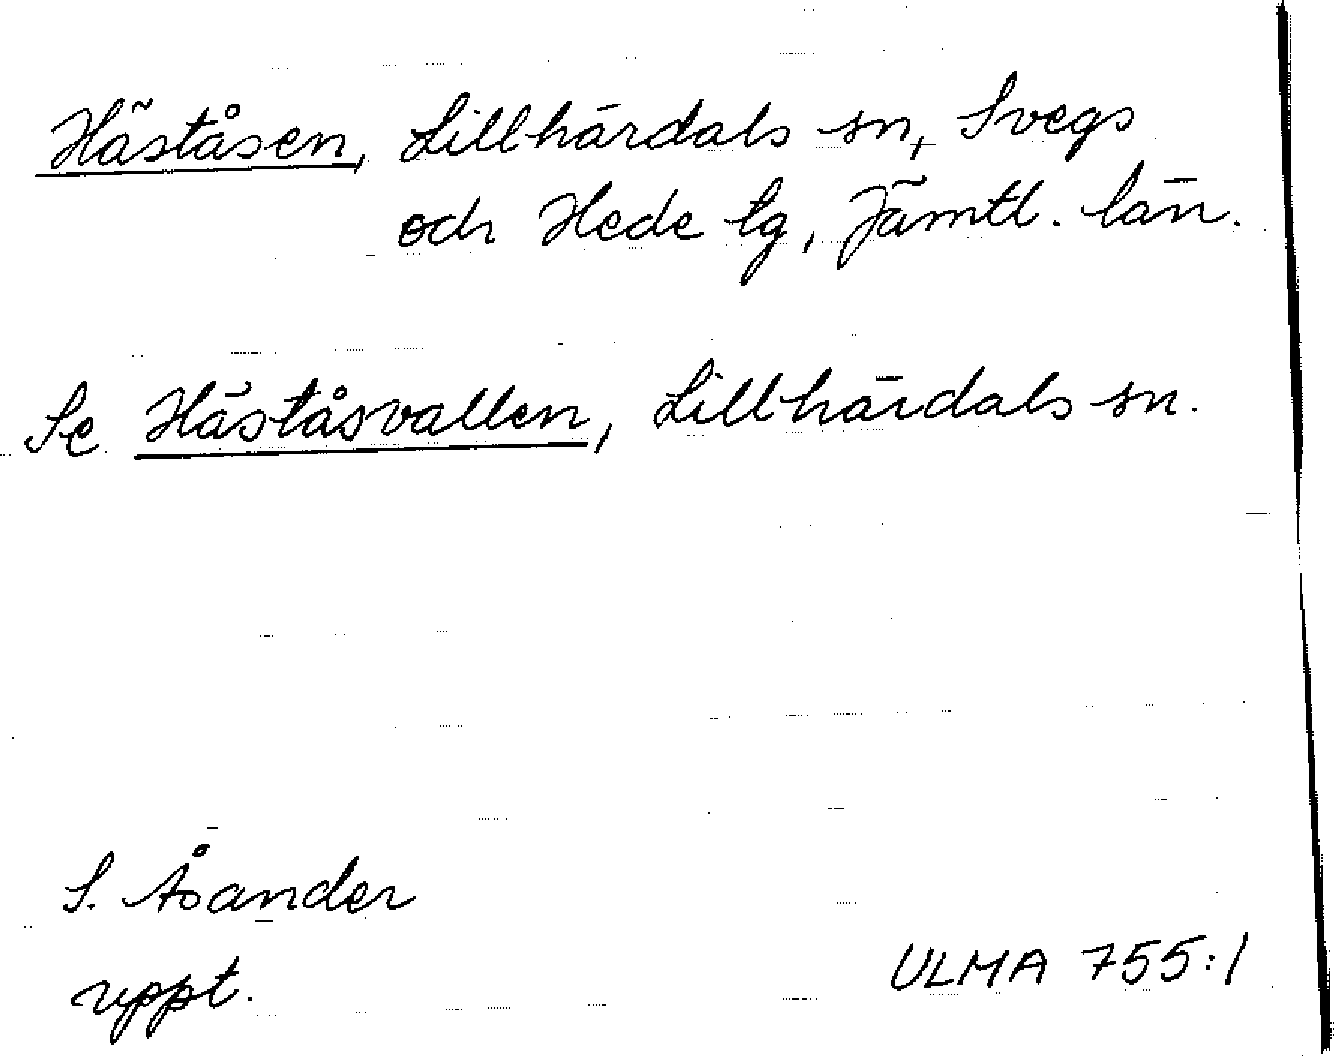 Häståsen, Lillhärdals sn, Svegs
och Hede tg, Jämtl. län.
Se Häståsvallen, Lillhärdals sn.
S. Åsander
uppt.
ULMA 755:1